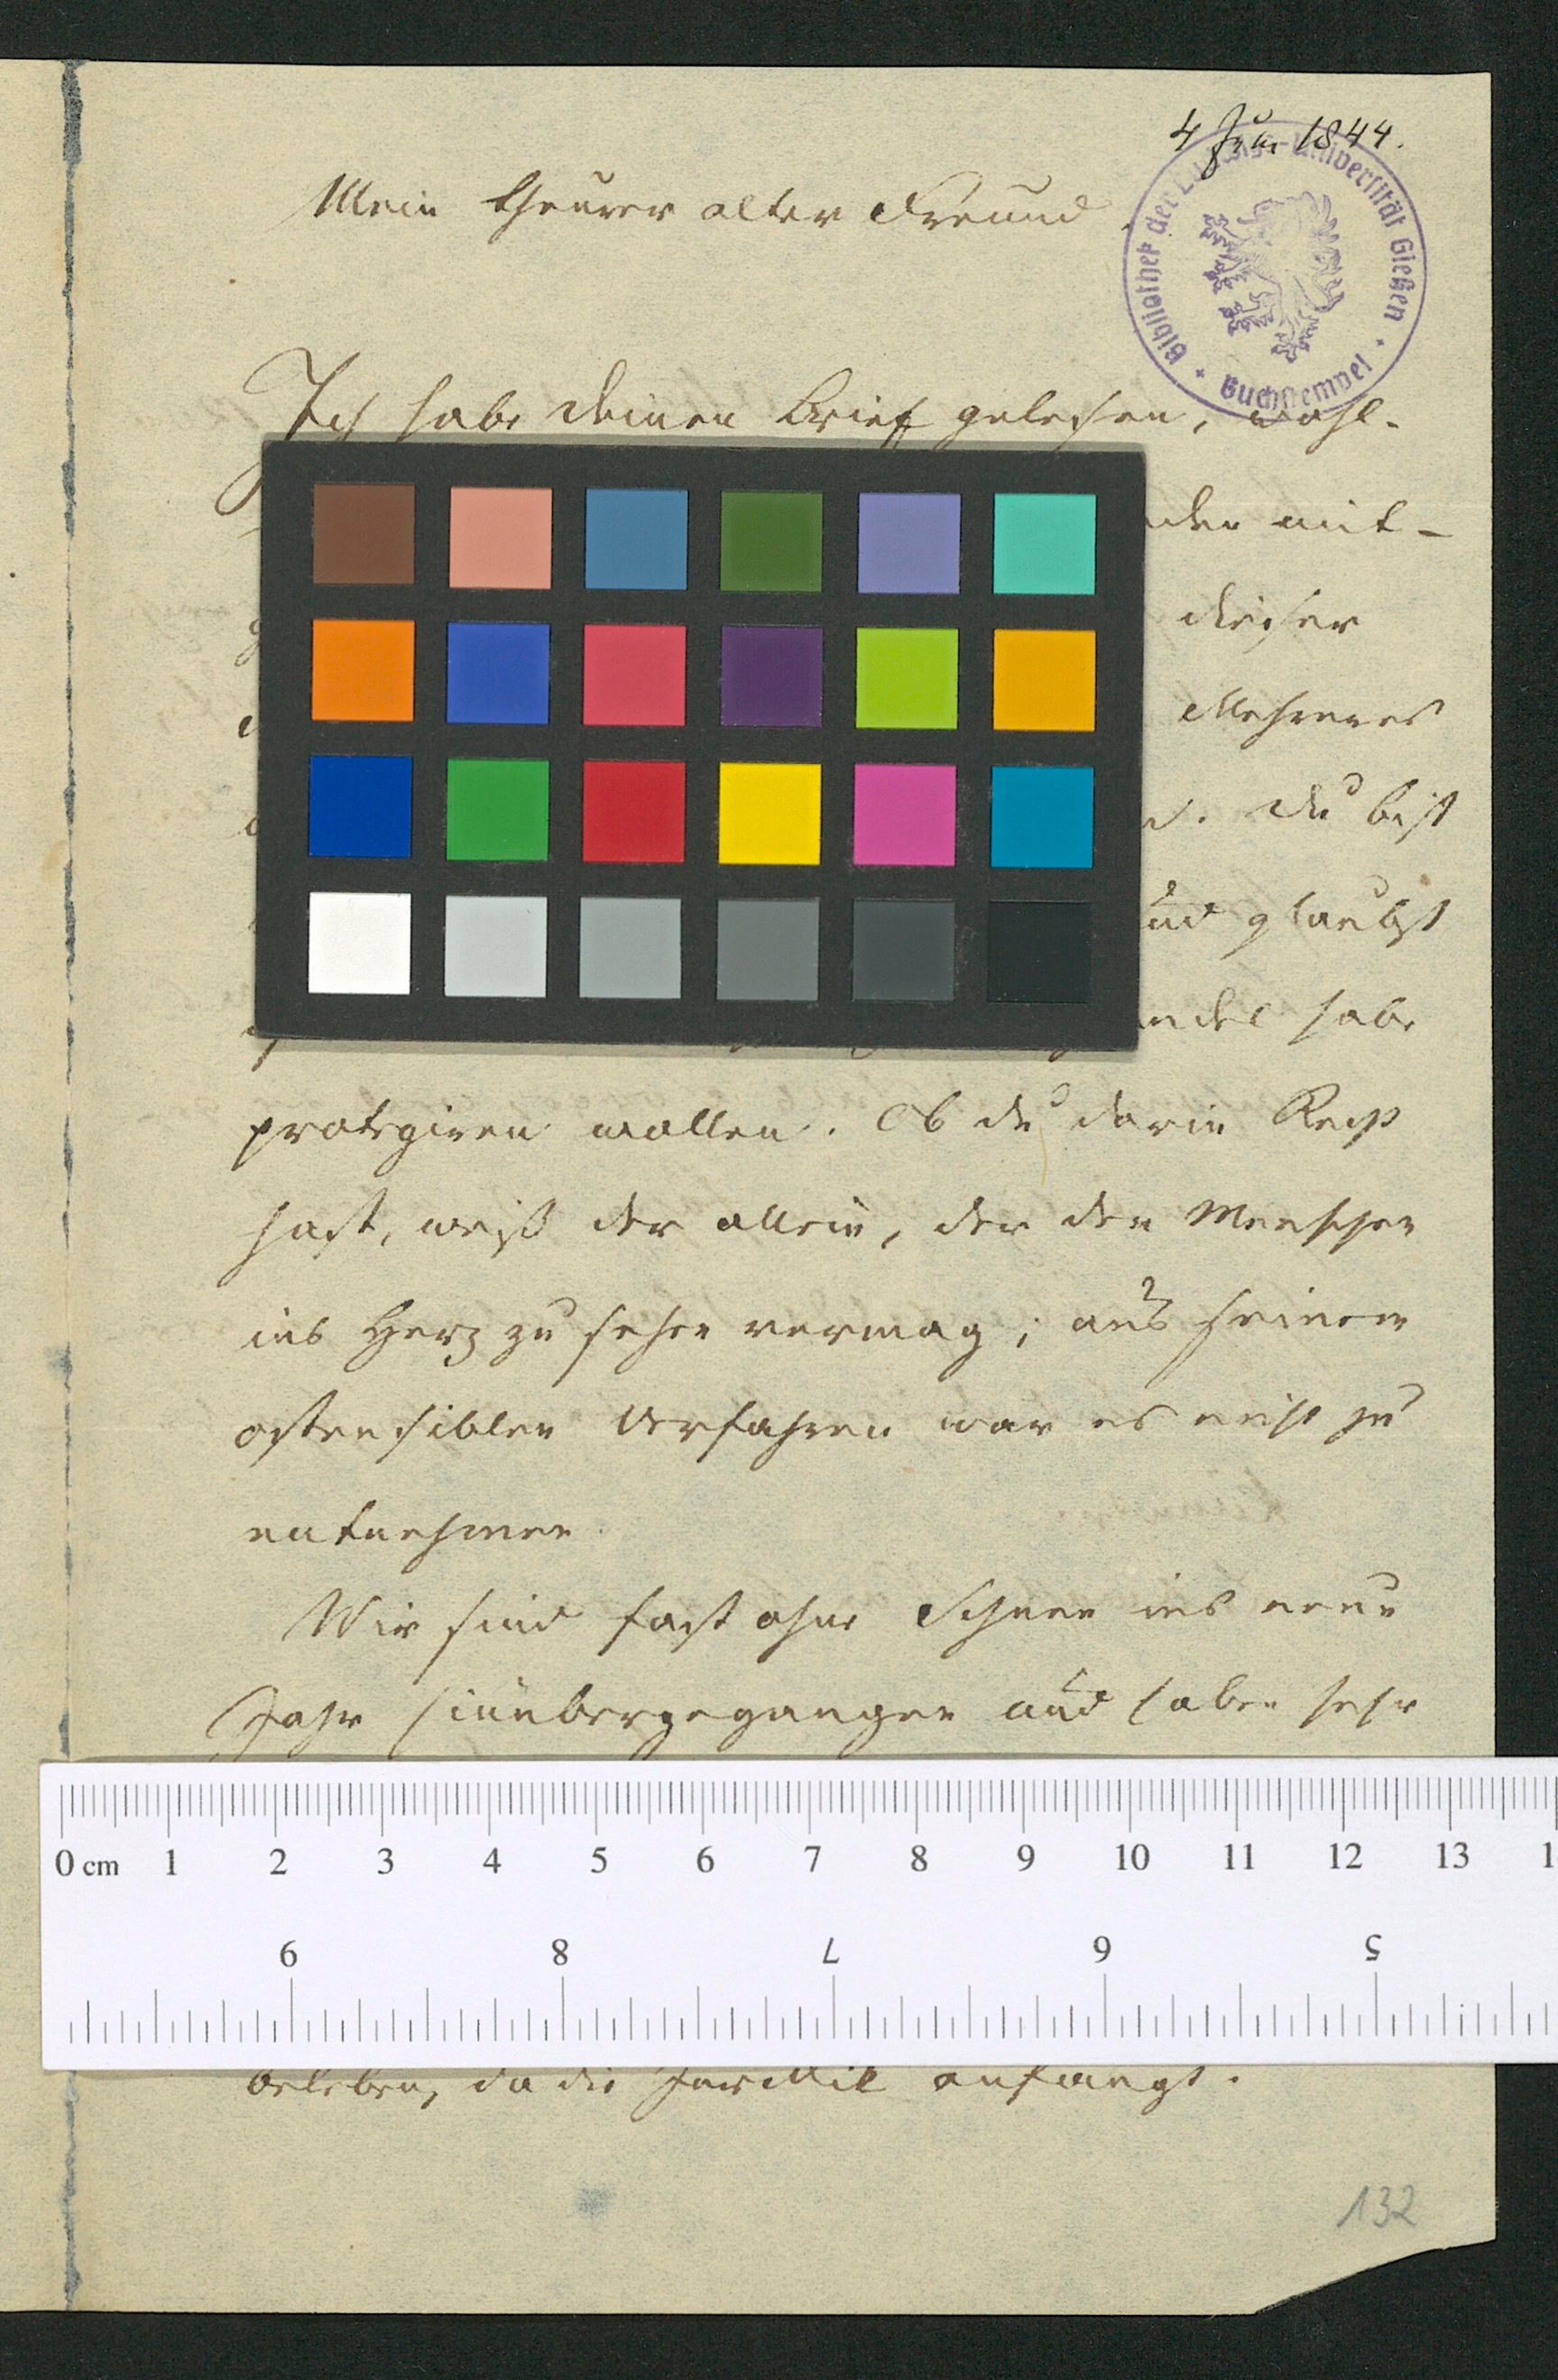 4 Jan 1844.
Bibliothek der Ludwigs-Universität Gießen
Buchstempel
Mein theurer alter Freund,
Ich habe deinen Brief gelesen, wohl-
mit-
dieser
Mehreres
Du bist
und glaubst
habe
protegiren wollen. Ob du darin Recht
hast, weiß der allein, der den Menschen
ins Herz zu sehen vermag; aus seinem
ostensiblen Verfahren war es nicht zu
entnehmen.
Wir sind fast ohne Schnee ins neue
Jahr hinübergegangen und haben sehr
0 cm 1 2 3 4 5 6 7 8 9 10 11 12 13
9 8 7 6 5
beleben, da die anfängt.
132